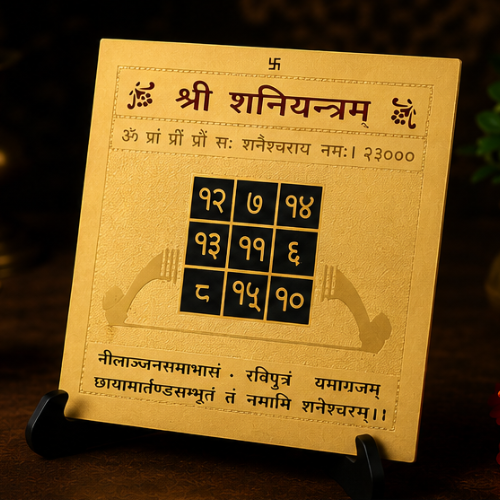 卐
श्री शनियन्त्रम्
ॐ प्रां प्रीं प्रौं सः शनैश्चराय नमः। २३०००
१२ ७ १४
१३ ११ ६
८ १५ १०
नीलाञ्जनसमाभासं · रविपुत्रं यमाग्रजम्
छायामार्तण्डसम्भूतं तं नमामि शनेश्चरम्।।